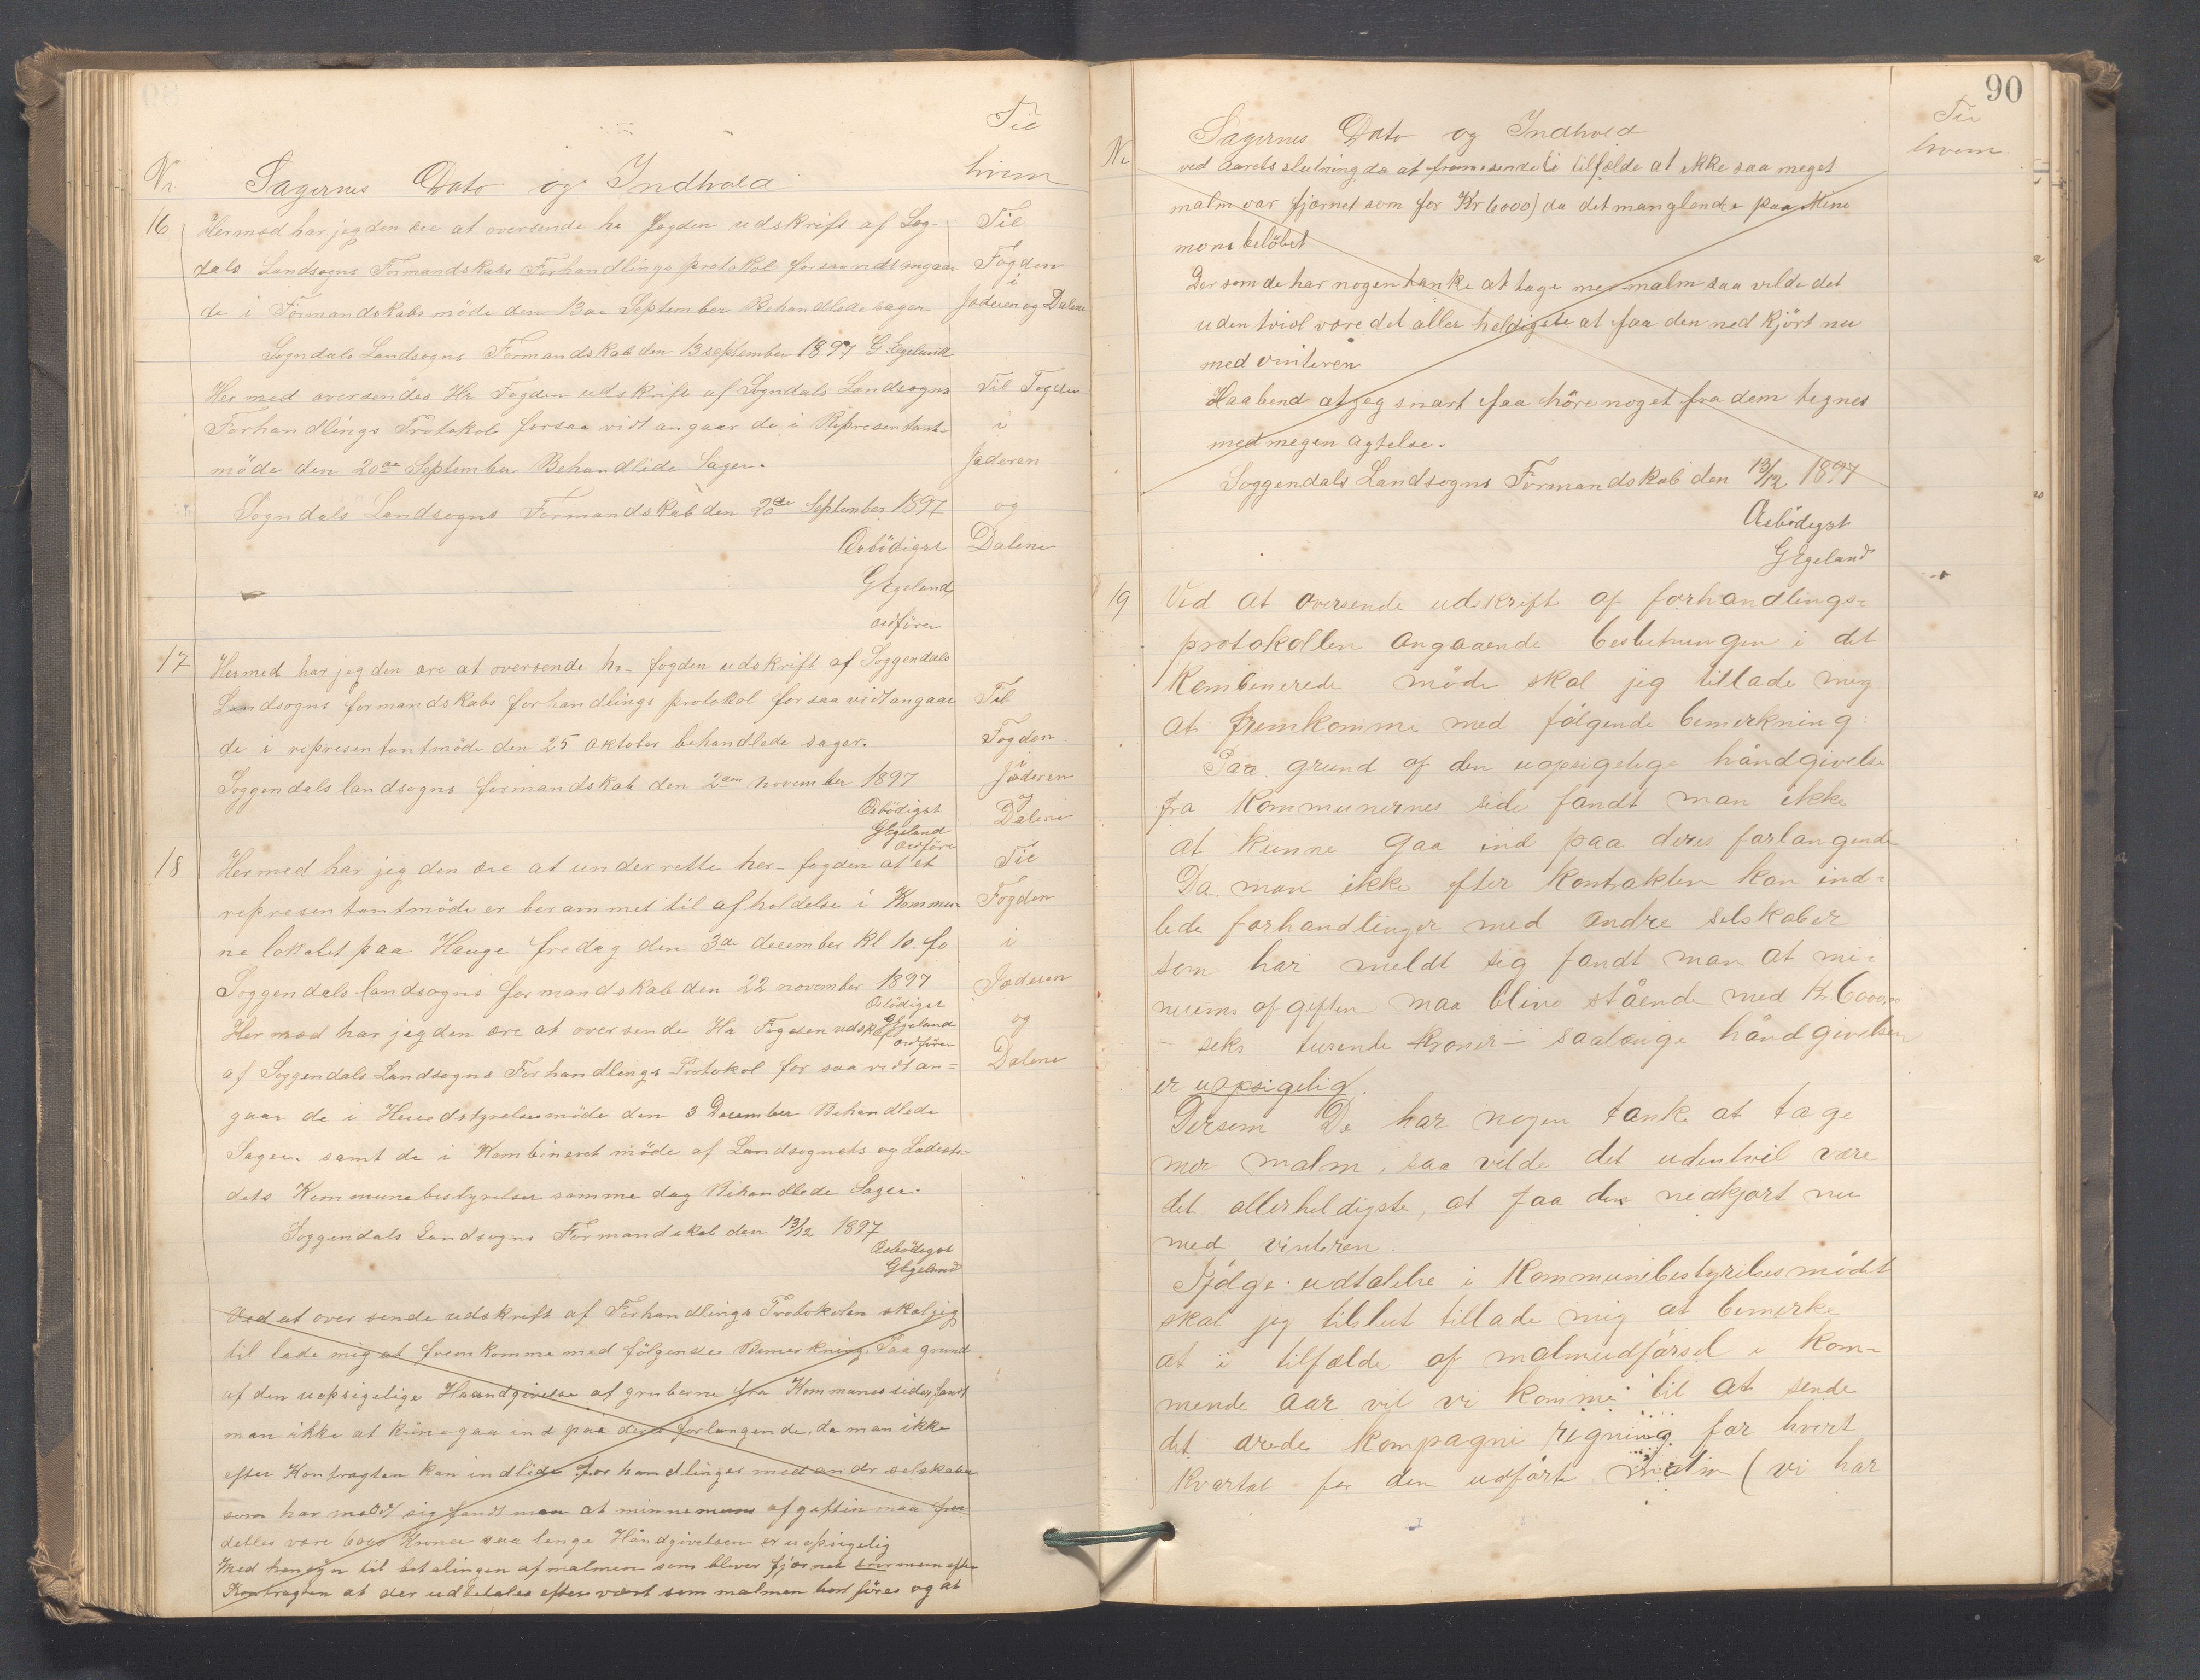 Nr Sagernes Dato og Indhold Til hvem
16 Hermed har jeg den ære at oversende hr Fogden udskrift af Sog- Til
dals Landsogns Formandskabs Forhandlings protokol forsaavidt angaar Fogden i
de i Formandskabs møde den 13de September Behandlede sager Jæderen og Dalene
Sogndals Landsogns Formandskab den 13 september 1897 G Egeland
Hermed oversendes Hr Fogden udskrift af Sogndals Landsogns Til Fogden
Forhandlings Protokol forsaa vidt angaar de i Representant- i
möde den 20de September Behandlede Sager. Jæderen
Sogndals Landsogns Formandskab den 20de September 1897 og
Ærbödigst Dalene
GEgeland
ordförer
17 Hermed har jeg den ære at oversende hr- fogden udskrift af Soggendals
Landsogns formandskabs forhandlings protokol forsaa vidt angaar Til
de i representantmöde den 25 oktober behandlede sager. Fogden
Soggendals landsogns formandskab den 2den november 1897 Jæderen
Ærbödigst og
GEgeland Dalene
ordförer
18 Hermed har jeg den ære at underrette her- fogden at et Til
representantmöde er berammet til afholdelse i Kommu- Fogden
ne lokalet paa Hauge fredag den 3de december Kl 10. fo i
Soggendals landsogns formandskab den 22 november 1897 Jæderen
Ærbödigst
GEgeland
ordförer
Hermed har jeg den ære at oversende Hr Fogden udskrift og
af Soggendals Landsogns Forhandlings Protokol for saa vidt an= Dalene
gaar de i Herredstyrelsesmöde den 3 December Behandlede
Sager. samt de i Kombineret möde af Landsognets og Ladeste-
dets Kommunebestyrelser samme dag Behandlede Sager.
Soggendals Landsogns Formandskab den 13/12 1897
Ærbödigst
GEgeland
Ved at over sende udskrift af Forhandlings Protokolen skal jeg
til lade mig at frem komme med fölgende Bemerkning. Paa grund
af den uopsigelige Haandgivelse af gruberne fra Kommunes side, fandt
man ikke at kune gaa ind paa deres forlangende, da man ikke
efter Kontragten kan indlede forhandlinger med andr selskaber
som har meldt sig fandt man at minnemums afgaftin maa frem
delles være 6000 Kroner saa lenge Håndgivelsen er uopsigelig
Med hensyn til betalingen af malmen som bliver fjærnet efter
Kontragten at der udbetales efter vært som malmen bort föres og at
90
Nr Sagernes Dato og Indhold Til hvem
ved aarets slutning da at fremsende (i tilfælde at ikke saa meget
malm var fjærnet som for Kr 6000) da det manglende paa Mine
mons belöbet
Dersom de har nogen tanke at tage mer malm saa vilde det
uden tviol være det aller heldigste at faa den ned kjört nu
med vinteren
Haabend at jeg snart faa höre noget fra dem tegnes
med megen agtelse.
Soggendals Landsogns Formandskab den 13/12 1897
Ærbödigst
GEgeland
19 Ved at oversende udskrift af forhandlings=
protokollen angaaende beslutningen i det
Kombinerede möde skal jeg tillade mig
at fremkomme med fölgende bemerkning:
Paa grund af den uopsigelige håndgivelse
fra Kommunernes side fandt man ikke
at kunne gaa ind paa deres forlangende
Da man ikke efter Kontrakten kan ind=
lede forhandlinger med andre selskaber
som har meldt sig fandt man at mi-
nuums afgiften maa blive stående med Kr. 6000,00
- seks tusende kroner - saalænge håndgivelsen
er uopsigelig.
Dersom De har nogen tanke at tage
mer malm, saa vilde det udentvil være
det allerheldigste, at faa den nedkjørt nu
med vinteren.
Ifölge udtalelse i Kommunebestyrelsesmödet
skal jeg tilslut tillade mig at bemerke
at i tilfælde af malmudførsel i kom-
mende aar vil vi komme til at sende
det ærede kompagni regning for hvert
kvartal for den udførte malm (vi har